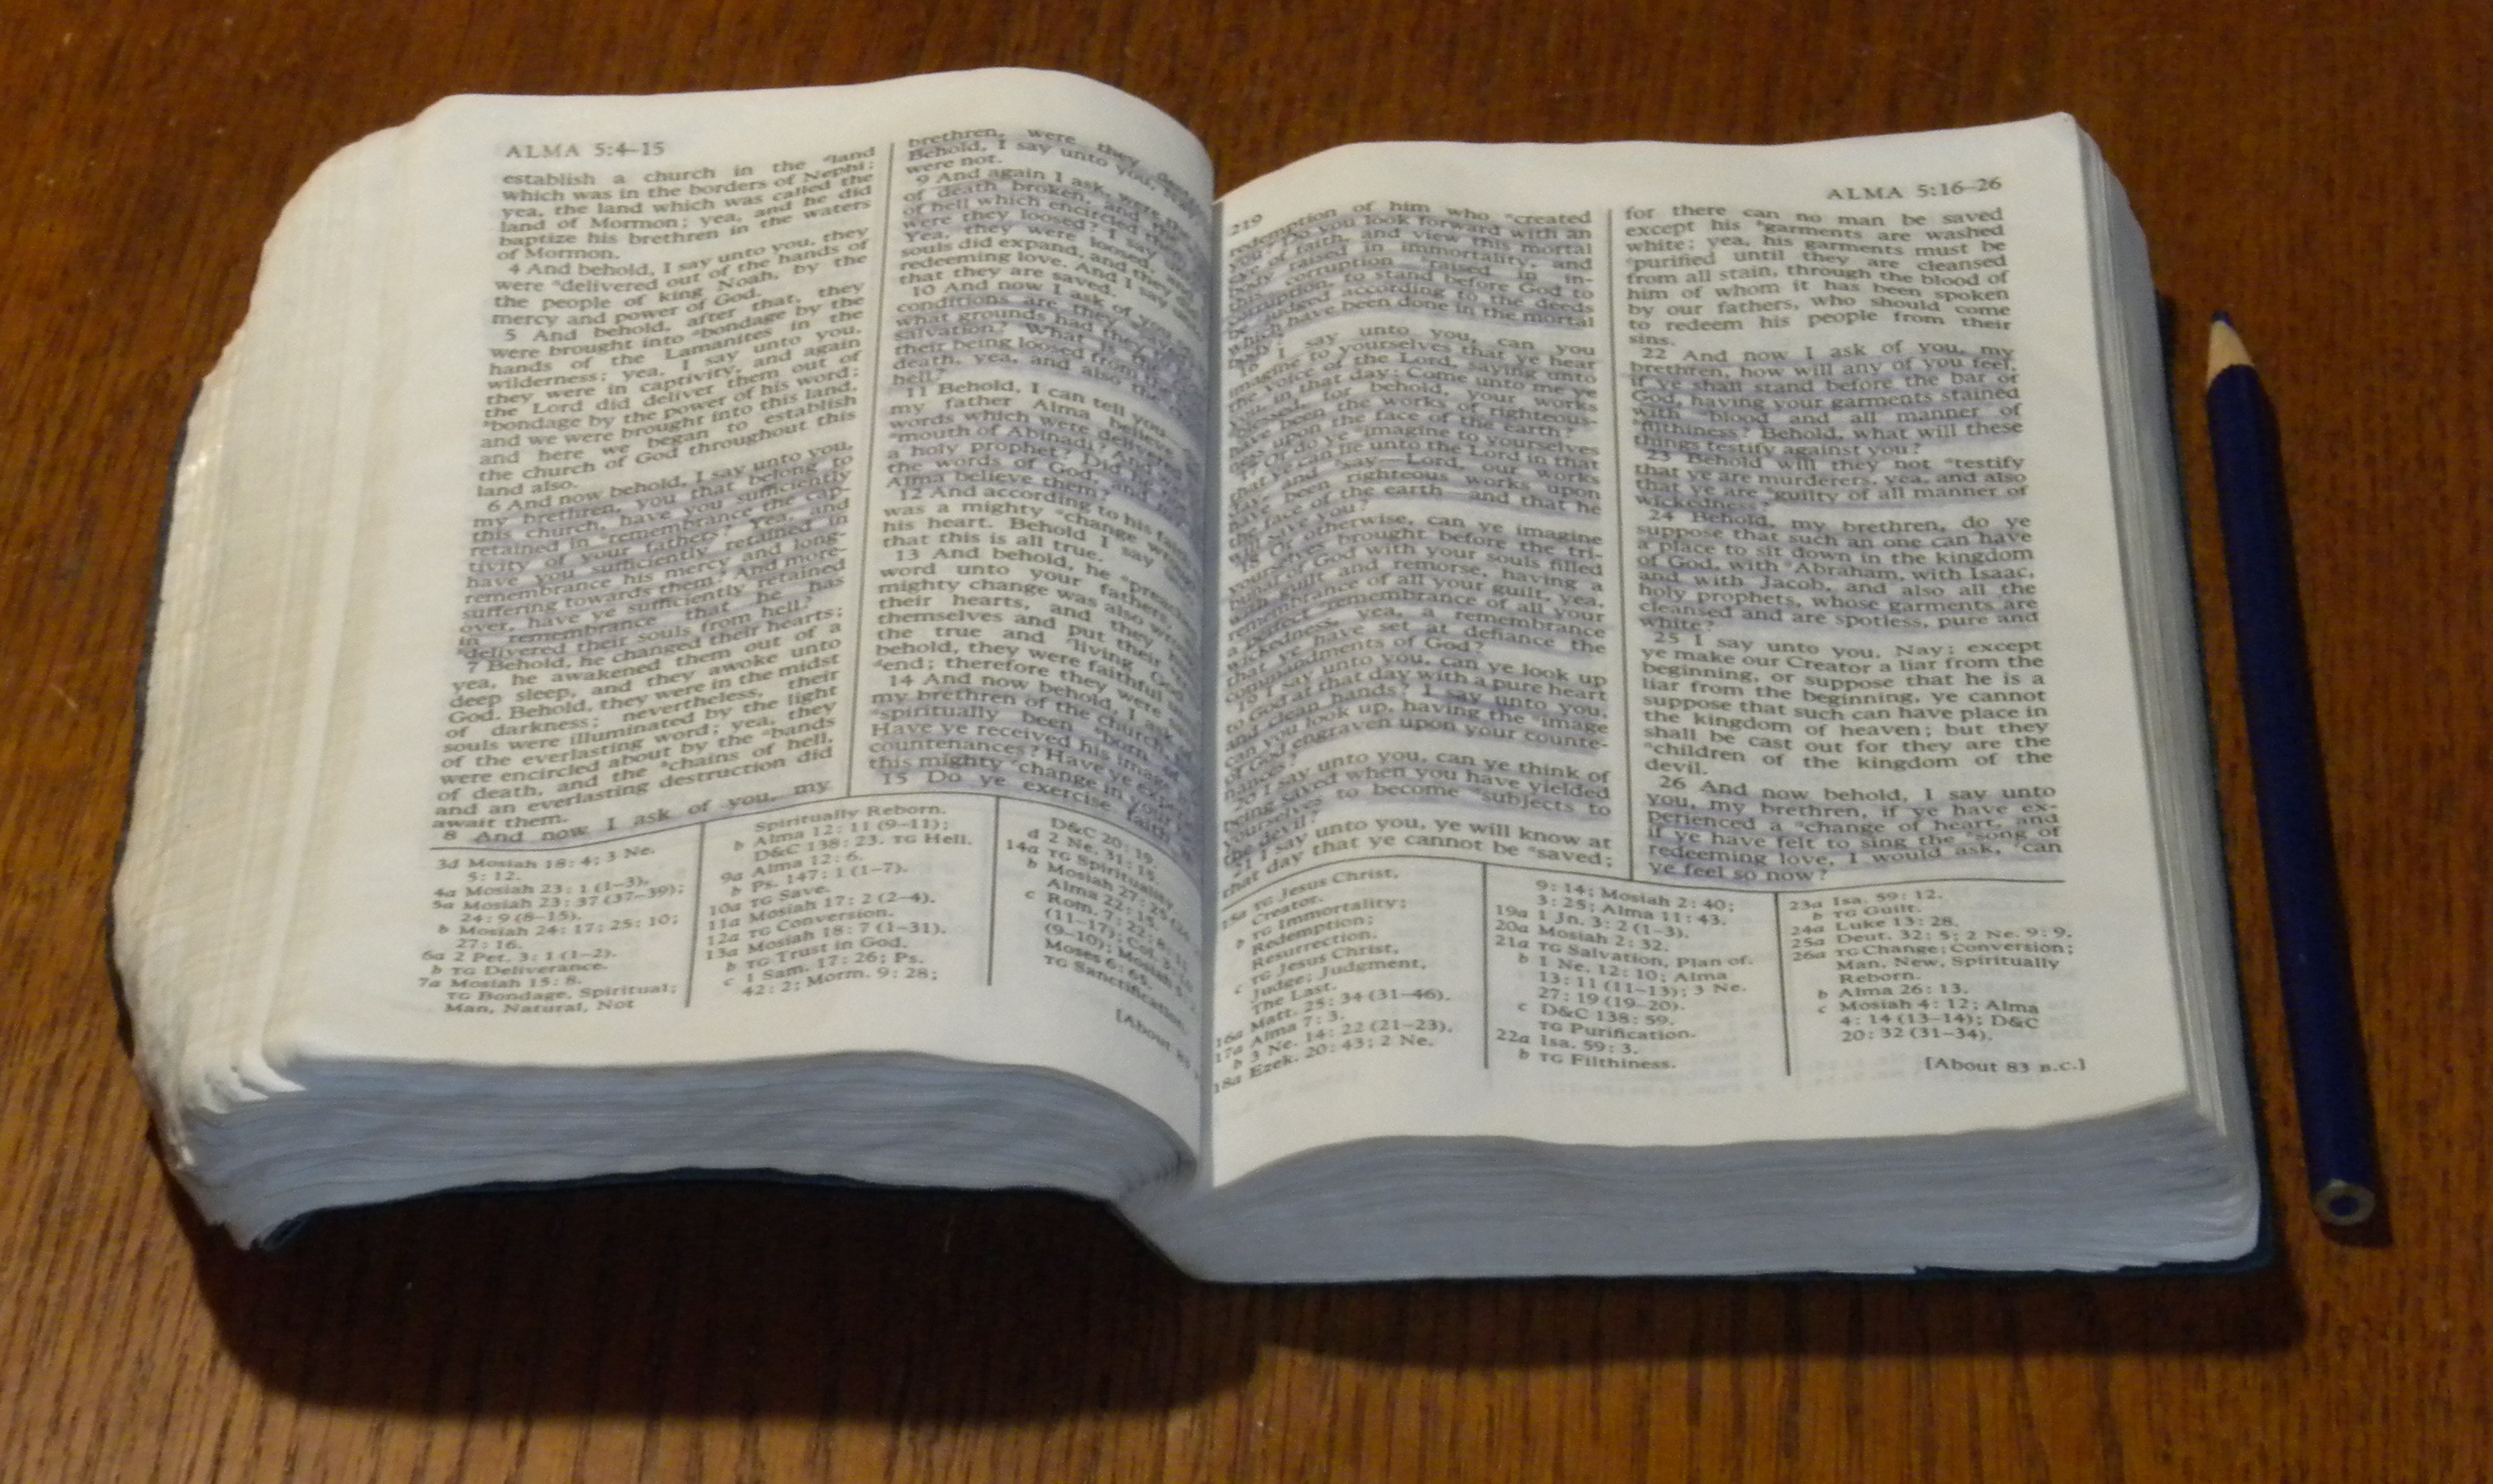 ALMA 5:4–15
establish a church in the land
which was in the borders of Nephi;
yea, the land which was called the
land of Mormon; yea, and he did
baptize his brethren in the waters
of Mormon.
4 And behold, I say unto you, they
were delivered out of the hands of
the people of king Noah, by the
mercy and power of God.
5 And behold, after that, they
were brought into bondage by the
hands of the Lamanites in the
wilderness; yea, I say unto you,
they were in captivity, and again
the Lord did deliver them out of
bondage by the power of his word;
and we were brought into this land,
and here we began to establish
the church of God throughout this
land also.
6 And now behold, I say unto you,
my brethren, you that belong to
this church, have you sufficiently
retained in remembrance the cap-
tivity of your fathers? Yea, and
have you sufficiently retained in
remembrance his mercy and long-
suffering towards them? And more-
over, have ye sufficiently retained
in remembrance that he has
delivered their souls from hell?
7 Behold, he changed their hearts;
yea, he awakened them out of a
deep sleep, and they awoke unto
God. Behold, they were in the midst
of darkness; nevertheless, their
souls were illuminated by the light
of the everlasting word; yea, they
were encircled about by the bands
of death, and the chains of hell,
and an everlasting destruction did
await them.
8 And now I ask of you, my
brethren, were they
Behold, I say unto you,
were not.
9 And again I ask, were
of death broken, and
of hell which encircled
were they loosed? I say
Yea, they were loosed,
souls did expand, and they did
redeeming love. And I say
that they are saved.
10 And now I ask of you
conditions are they
what grounds had they
salvation? What is
their being loosed from
death, yea, and also the
hell?
11 Behold, I can tell you
my father Alma believe
words which were delivered
mouth of Abinadi? And
a holy prophet? Did he
the words of God, and
Alma believe them?
12 And according to his faith
was a mighty change
his heart. Behold I say
that this is all true.
13 And behold, he preached
word unto your fathers,
mighty change was also
their hearts, and they
themselves and put their
the true and living God.
behold, they were faithful
end; therefore they were
14 And now behold, I ask
my brethren of the church,
spiritually been born
Have ye received his image
countenances? Have ye
this mighty change in your
15 Do ye exercise faith
3d Mosiah 18: 4; 3 Ne.
5: 12.
4a Mosiah 23: 1 (1–3).
5a Mosiah 23: 37 (37–39);
24: 9 (8–15).
b Mosiah 24: 17; 25: 10;
27: 16.
6a 2 Pet. 3: 1 (1–2).
b TG Deliverance.
7a Mosiah 15: 8.
TG Bondage, Spiritual;
Man, Natural, Not
Spiritually Reborn.
b Alma 12: 11 (9–11);
D&C 138: 23. TG Hell.
9a Alma 12: 6.
b Ps. 147: 1 (1–7).
10a TG Save.
11a Mosiah 17: 2 (2–4).
12a TG Conversion.
13a Mosiah 18: 7 (1–31).
b TG Trust in God.
c 1 Sam. 17: 26; Ps.
42: 2; Morm. 9: 28;
D&C 20: 19.
d 2 Ne. 31: 15.
14a TG Spirituality.
b Mosiah 27: 25
Alma 22: 15.
c Rom. 7: 22;
(11–17); Col.
(9–10); Mosiah
Moses 6: 65.
TG Sanctification.
[About 83
219
ALMA 5:16–26
redemption of him who created
you? Do you look forward with an
eye of faith, and view this mortal
body raised in immortality, and
this corruption raised in in-
corruption, to stand before God to
be judged according to the deeds
which have been done in the mortal
body?
16 I say unto you, can you
imagine to yourselves that ye hear
the voice of the Lord, saying unto
you, in that day: Come unto me ye
blessed, for behold, your works
have been the works of righteous-
ness upon the face of the earth?
17 Or do ye imagine to yourselves
that ye can lie unto the Lord in that
day, and say—Lord, our works
have been righteous works upon
the face of the earth—and that he
will save you?
18 Or otherwise, can ye imagine
yourselves brought before the tri-
bunal of God with your souls filled
with guilt and remorse, having a
remembrance of all your guilt, yea,
a perfect remembrance of all your
wickedness, yea, a remembrance
that ye have set at defiance the
commandments of God?
19 I say unto you, can ye look up
to God at that day with a pure heart
and clean hands? I say unto you,
can you look up, having the image
of God engraven upon your counte-
nances?
20 I say unto you, can ye think of
being saved when you have yielded
yourselves to become subjects to
the devil?
21 I say unto you, ye will know at
that day that ye cannot be saved;
for there can no man be saved
except his garments are washed
white; yea, his garments must be
purified until they are cleansed
from all stain, through the blood of
him of whom it has been spoken
by our fathers, who should come
to redeem his people from their
sins.
22 And now I ask of you, my
brethren, how will any of you feel,
if ye shall stand before the bar of
God, having your garments stained
with blood and all manner of
filthiness? Behold, what will these
things testify against you?
23 Behold will they not testify
that ye are murderers, yea, and also
that ye are guilty of all manner of
wickedness?
24 Behold, my brethren, do ye
suppose that such an one can have
a place to sit down in the kingdom
of God, with Abraham, with Isaac,
and with Jacob, and also all the
holy prophets, whose garments are
cleansed and are spotless, pure and
white?
25 I say unto you, Nay; except
ye make our Creator a liar from the
beginning, or suppose that he is a
liar from the beginning, ye cannot
suppose that such can have place in
the kingdom of heaven; but they
shall be cast out for they are the
children of the kingdom of the
devil.
26 And now behold, I say unto
you, my brethren, if ye have ex-
perienced a change of heart, and
if ye have felt to sing the song of
redeeming love, I would ask, can
ye feel so now?
15a TG Jesus Christ,
Creator.
b TG Immortality;
Redemption;
Resurrection.
c TG Jesus Christ,
Judge; Judgment,
The Last.
16a Matt. 25: 34 (31–46).
17a Alma 7: 3.
b 3 Ne. 14: 22 (21–23).
18a Ezek. 20: 43; 2 Ne.
9: 14; Mosiah 2: 40;
3: 25; Alma 11: 43.
19a 1 Jn. 3: 2 (1–3).
20a Mosiah 2: 32.
21a TG Salvation, Plan of.
b 1 Ne. 12: 10; Alma
13: 11 (11–13); 3 Ne.
27: 19 (19–20).
c D&C 138: 59.
TG Purification.
22a Isa. 59: 3.
b TG Filthiness.
23a Isa. 59: 12.
b TG Guilt.
24a Luke 13: 28.
25a Deut. 32: 5; 2 Ne. 9: 9.
26a TG Change; Conversion;
Man, New, Spiritually
Reborn.
b Alma 26: 13.
c Mosiah 4: 12; Alma
4: 14 (13–14); D&C
20: 32 (31–34).
[About 83 B.C.]